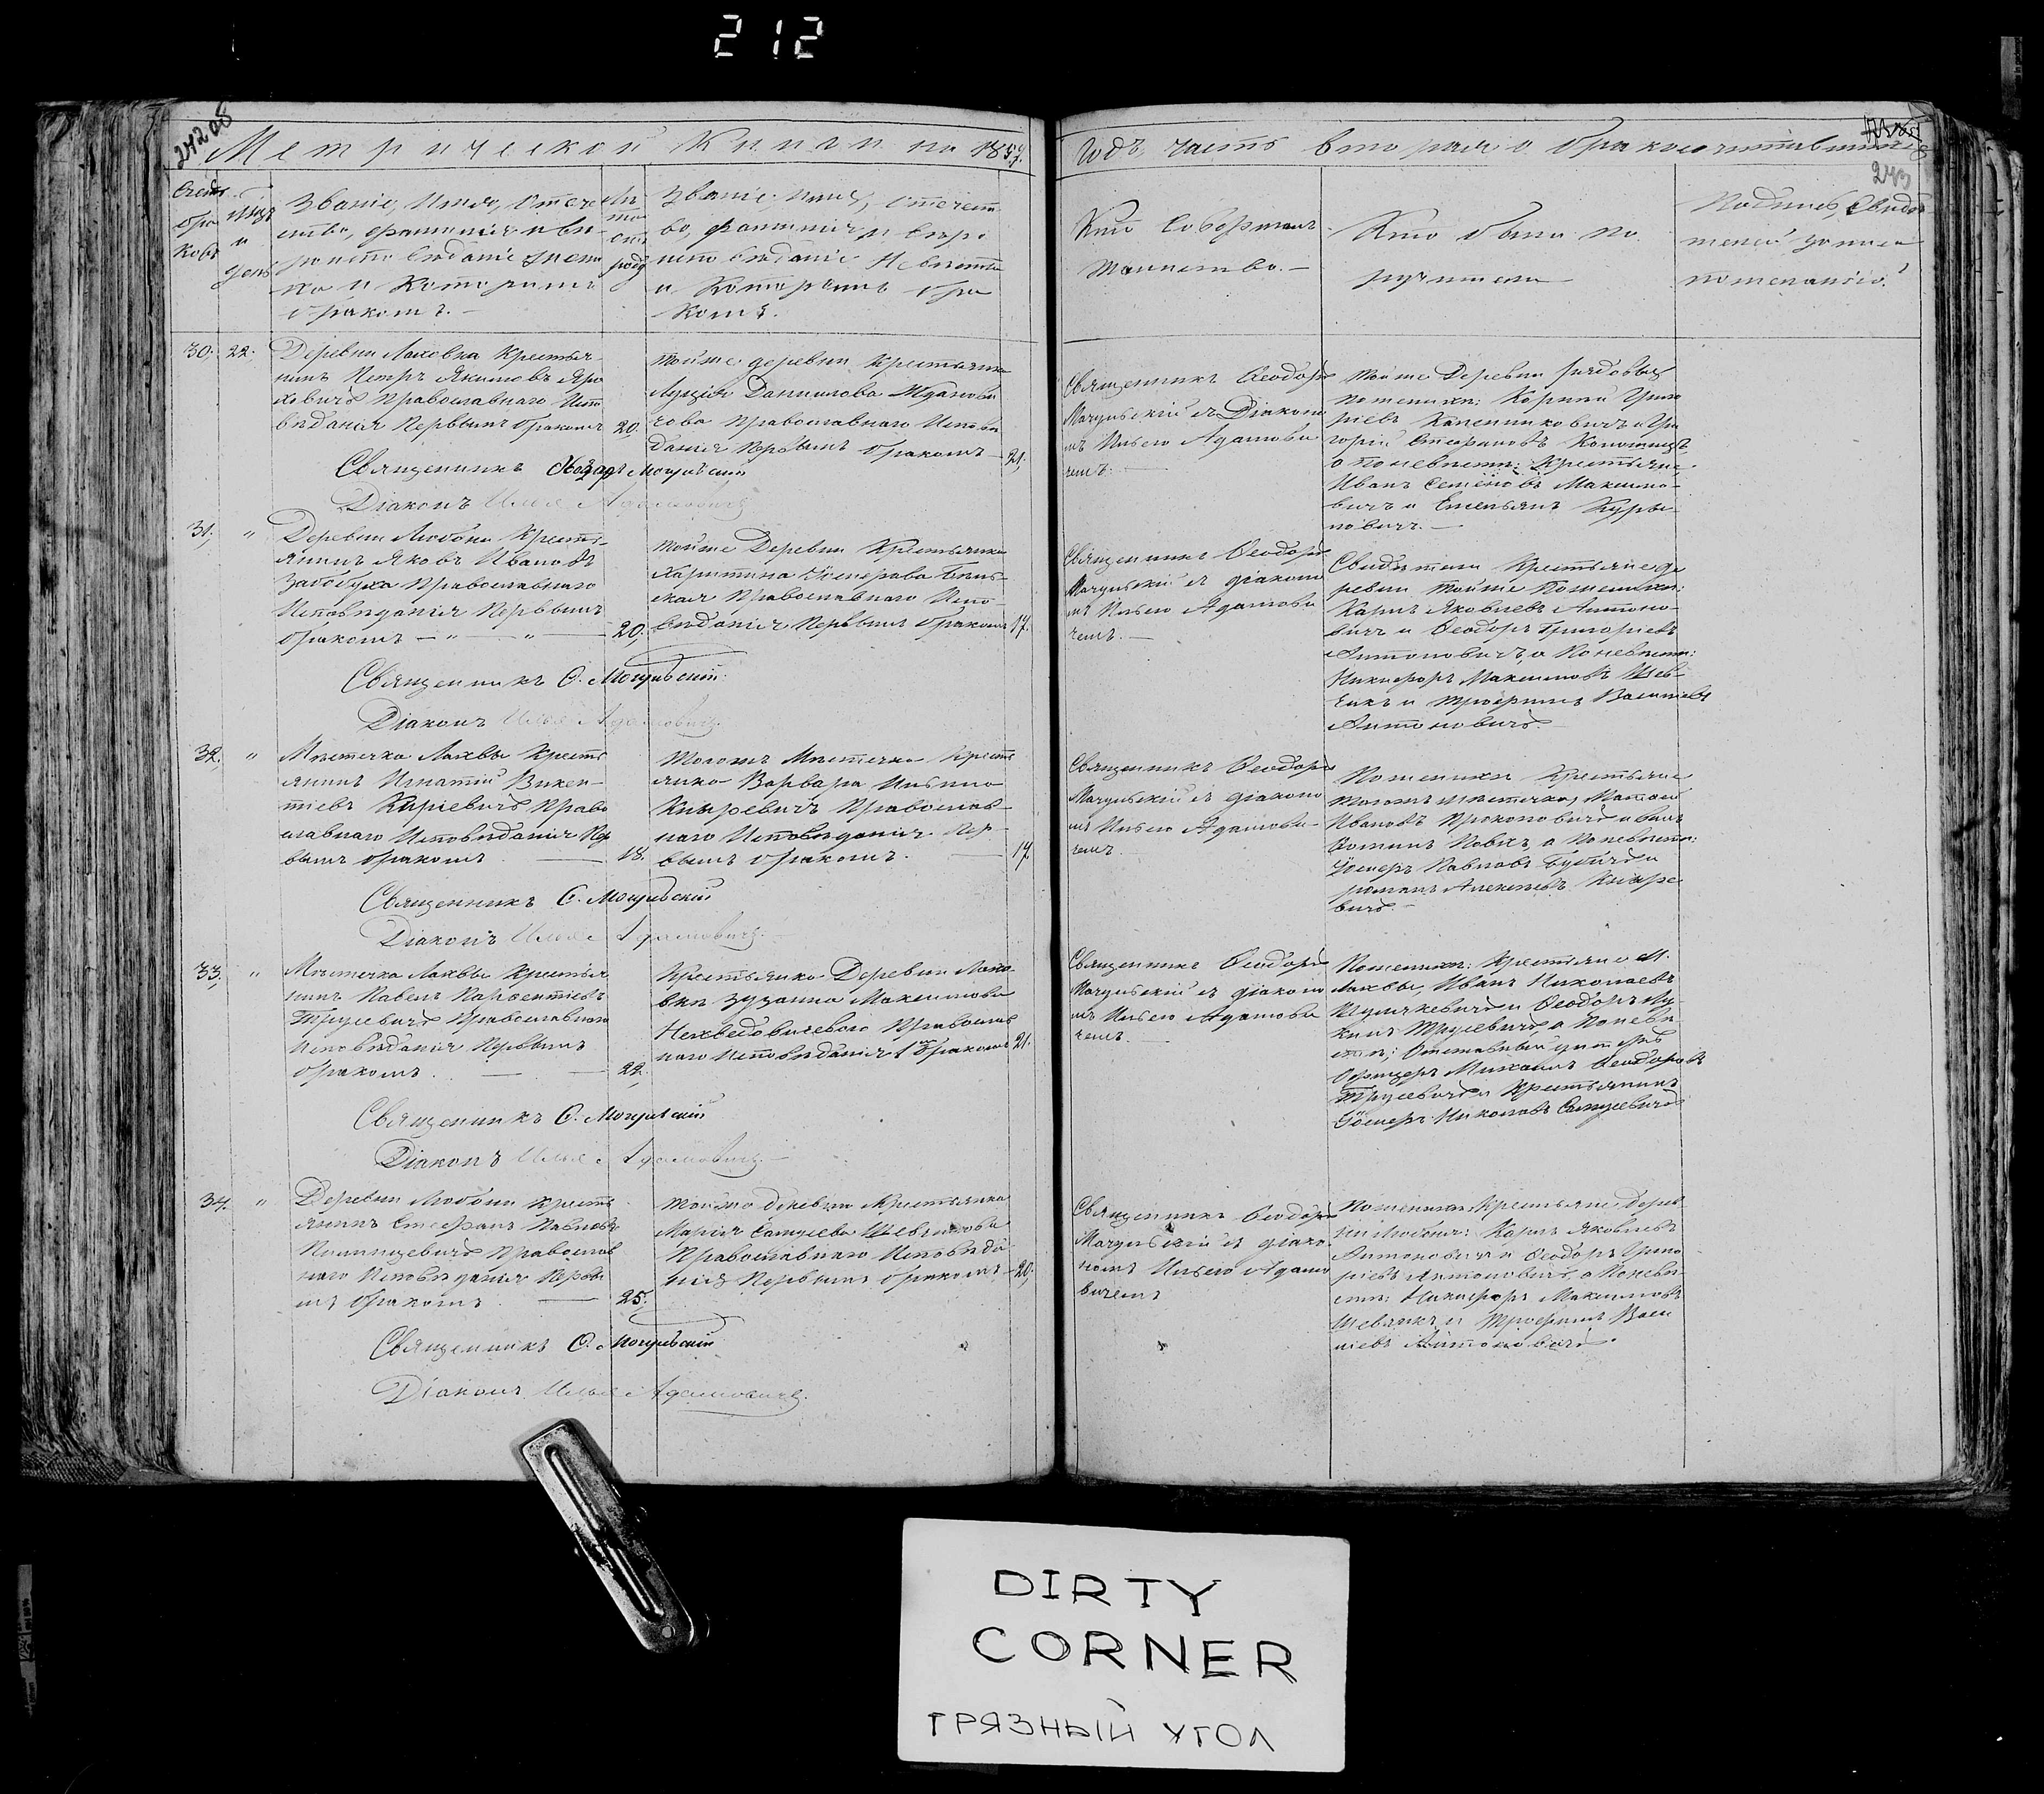 212
242 об
243
Метрической Книги на 1857
Годъ часть вторая о бракосочетавшихся
Счетъ
бра
ковъ
Мцъ
и
день
Званіе, Имя, Отече
ство, фамилія и вѣ
роисповѣданіе жени
ха и Которымъ
бракомъ. —
Лѣ
та
его
Званіе, имя, отечест
во, фамилія и вѣро
исповѣданіе Невѣсты
и Которымъ бра
комъ.
Кто Совершалъ
Таинство. —
Кто былъ по
ручители
Подпись, Свидѣ
телей записи
по желанію.
30. 22.
Деревни Лаховка Крестья
нинъ Петръ Якимовъ Яро
ховичъ Православнаго Испо
вѣданія Первымъ бракомъ 20.
Тойже деревни Крестьянка
Данилова Жданови
чова Православнаго Исповѣ
данія Первымъ бракомъ 21.
Священникъ Ѳеодоръ
Мацулевскій съ Діакono
мъ Ильею Адамови
чемъ. —
Тойже Деревни
по женихѣ: Корней Григо
рьевъ и Гри
горій Стефановъ
а по невѣстѣ: Крестьяне
Иванъ Семеновъ Максимо
вичъ и Емельянъ Курья
новичъ. —
Священникъ
Діаконъ Илья Адамовичъ
31. "
Деревни Любони Кресть
янинъ Яковъ Ивановъ
Православнаго
Исповѣданія Первымъ
бракомъ — " — " — 20.
Тойже Деревни Крестьянка
Харитина
Православнаго Испо
вѣданія Первымъ бракомъ 17.
Священникъ Ѳеодоръ
Мацулевскій съ діаконо
мъ Ильею Адамови
чемъ. —
Свидѣтели Крестьяне де
ревни тойже По женихѣ:
Карпъ Яковлевъ Антоно
вичъ и Ѳеодоръ Григорьевъ
Антоновичъ, а По невѣстѣ:
Никифоръ Максимовъ Шев
чикъ и Трофимъ Васильевъ
Антоновичъ
Священникъ Ѳ. Мацулевскій
Діаконъ Илья Адамовичъ
32. "
Мѣстечка Лахвы Кресть
янинъ Игнатій Викен
тіевъ Право
славнаго Исповѣданія Пер
вымъ бракомъ — 18.
Тогожъ Мѣстечка Кресть
янка Варвара Ильина
Православ
наго Исповѣданія Пер
вымъ бракомъ. — 17.
Священникъ Ѳеодоръ
Мацулевскій съ діаконо
мъ Ильею Адамови
чемъ
По женихѣ Крестьяне
тогожъ мѣстечка,
Ивановъ Прокоповичъ и
а По невѣстѣ:
Павловъ и
Романъ Алексѣевъ
вичъ. —
Священникъ Ѳ. Мацулевскій
Діаконъ Илья Адамовичъ. —
33. "
Мѣстечка Лахвы Крестья
нинъ Павелъ
Трусевичъ Православнаго
Исповѣданія Первымъ
бракомъ. — — 22.
Крестьянка Деревни Лахо
вки Зузанна Максимова
Православ
наго Исповѣданія 1мъ бракомъ 21.
Священникъ Ѳеодоръ
Мацулевскій съ діаконо
мъ Ильею Адамови
чемъ. —
По женихѣ: Крестьяне М.
Лахвы, Иванъ Николаевъ
и Ѳеодоръ Лу
кинъ Трусевичъ, а По невѣ
стѣ: Отставный унтеръ
Офицеръ Михаилъ Ѳеодоровъ
Трусевичъ и Крестьянинъ
Іосифъ Николаевъ
Священникъ Ѳ. Мацулевскій
Діаконъ Илья Адамовичъ. —
34. "
Деревни Любони Кресть
янинъ Стефанъ Павловъ
Православ
наго Исповѣданія Первы
мъ бракомъ — 25.
Тойже деревни Крестьянка
Марія Самуева Шевчикова
Православнаго Исповѣда
нія Первымъ бракомъ — 20.
Священникъ Ѳеодоръ
Мацулевскій съ діако
номъ Ильею Адамо
вичемъ
По женихѣ Крестьяне Дерев
ни Любони: Карпъ Яковлевъ
Антоновичъ и Ѳеодоръ Григо
рьевъ Антоновичъ, а По невѣ
стѣ: Никифоръ Максимовъ
Шевчикъ и Трофимъ Васи
ліевъ Антоновичъ.
Священникъ Ѳ. Мацулевскій
Діаконъ Илья Адамовичъ.
DIRTY
CORNER
ГРЯЗНЫЙ УГОЛ